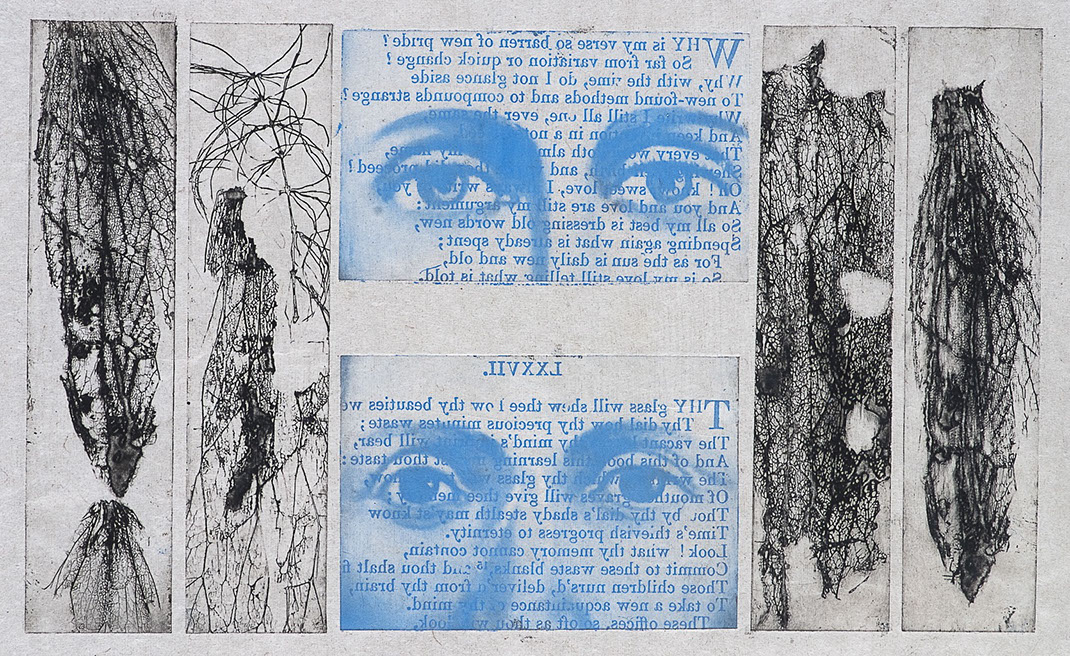 WHY is my verse so barren of new pride?
So far from variation or quick change?
Why, with the time, do I not glance aside
To new-found methods and to compounds strange?
Why write I still all one, ever the same,
And keep in a
every doth my
and proceed!
Oh! know, sweet love, I always write you,
And you and love are still my argument:
So all my best is dressing old words new,
Spending again what is already spent;
For as the sun is daily new and old,
So is my love still telling what is told.
LXXVII.
THY glass will show thee how thy beauties we
Thy dial how thy precious minutes waste;
The vacant thy mind's imprint will bear,
And of this book this learning may'st thou taste:
The which thy glass will show,
Of mouthed graves will give thee memory;
Thou by thy dial's shady stealth may'st know
Time's thievish progress to eternity.
Look! what thy memory cannot contain,
Commit to these waste blanks,¹⁵ and thou shalt fi
Those children nurs'd, deliver'd from thy brain,
To take a new acquaintance of thy mind.
These offices, so oft as thou wilt look,